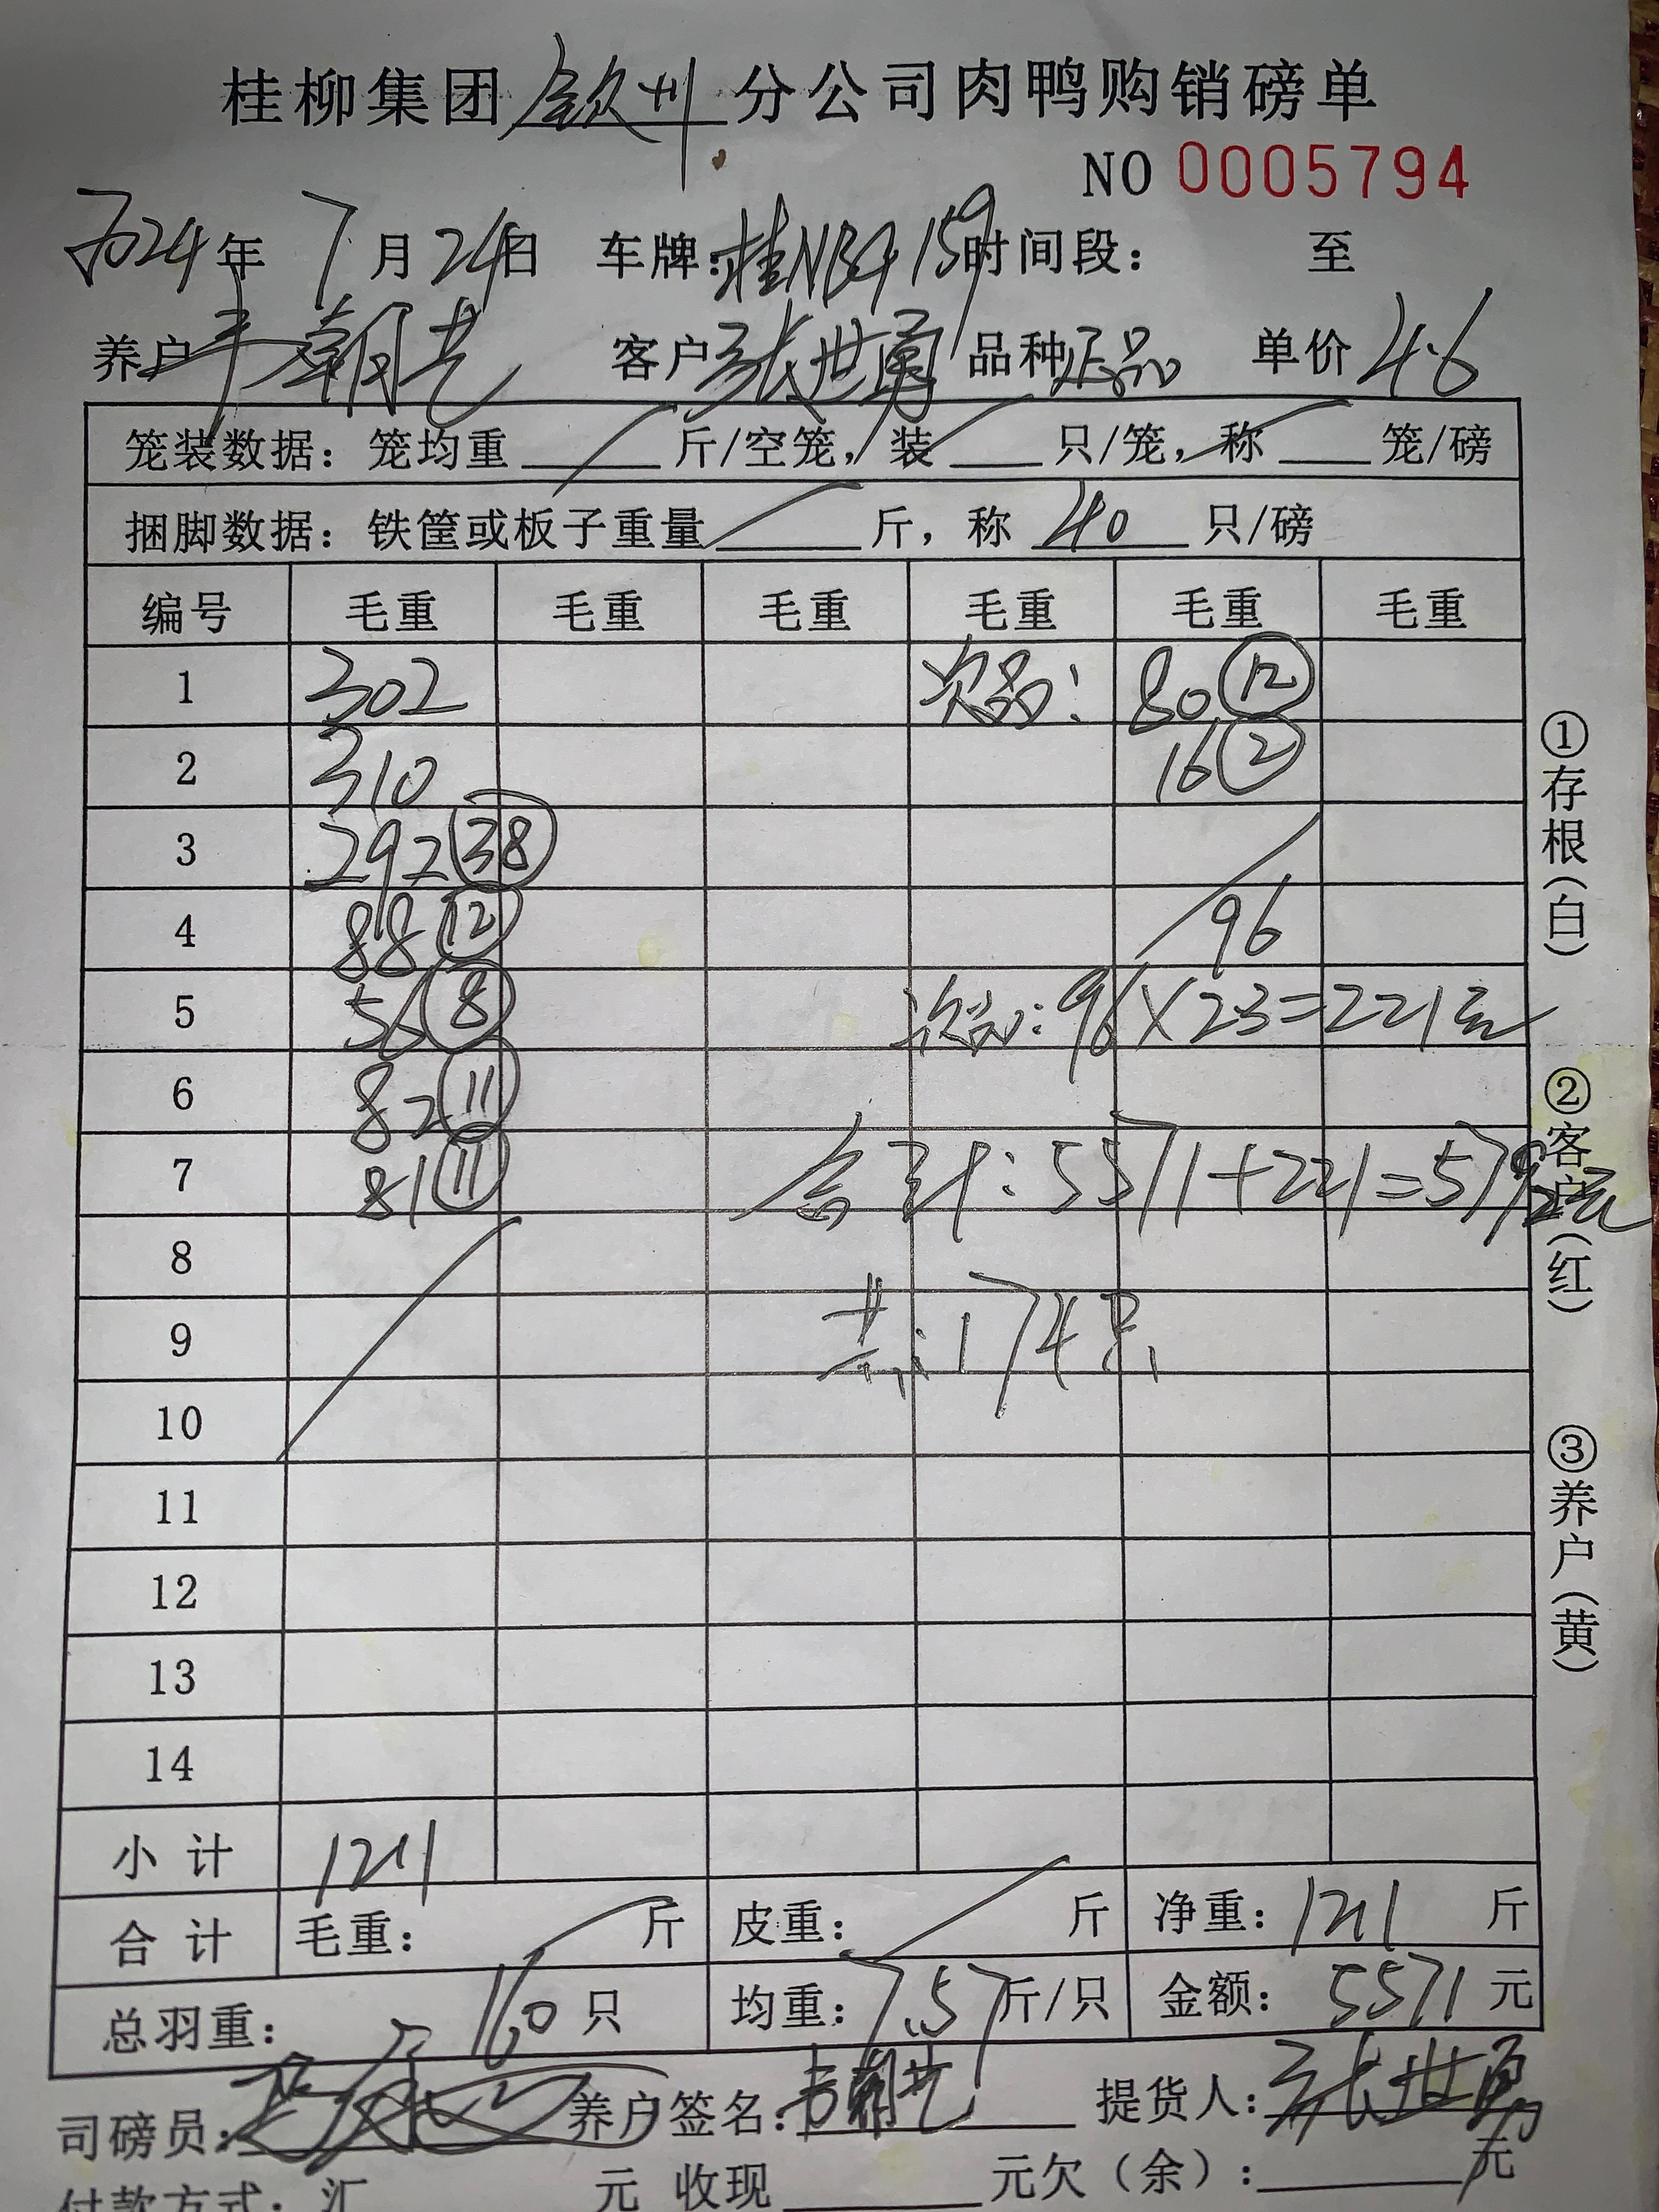 桂柳集团钦州分公司肉鸭购销磅单
NO 0005794
2024年 7月24日 车牌:桂NB4159 时间段: 至
养户 韦朝艺 客户 张世勇 品种 正品 单价 4.6
笼装数据:笼均重 斤/空笼,装 只/笼,称 笼/磅
捆脚数据:铁筐或板子重量 斤,称 40 只/磅
编号 毛重 毛重 毛重 毛重 毛重 毛重
1 302 次品: 80 ⑫
2 310 16 ②
3 292 ㊳
4 88 ⑫ 96
5 56 ⑧ 次品:96×23=221元
6 82 ⑪
7 81 ⑪ 合计:5571+221=5792元
8
9 共:174只
10
11
12
13
14
小计 1211
合计 毛重: 斤 皮重: 斤 净重:1211 斤
总羽重: 160 只 均重:7.57 斤/只 金额: 5571 元
司磅员: 养户签名:韦朝艺 提货人:张世勇
付款方式:汇 元 收现 元欠(余): 元
①存根(白)
②客户(红)
③养户(黄)